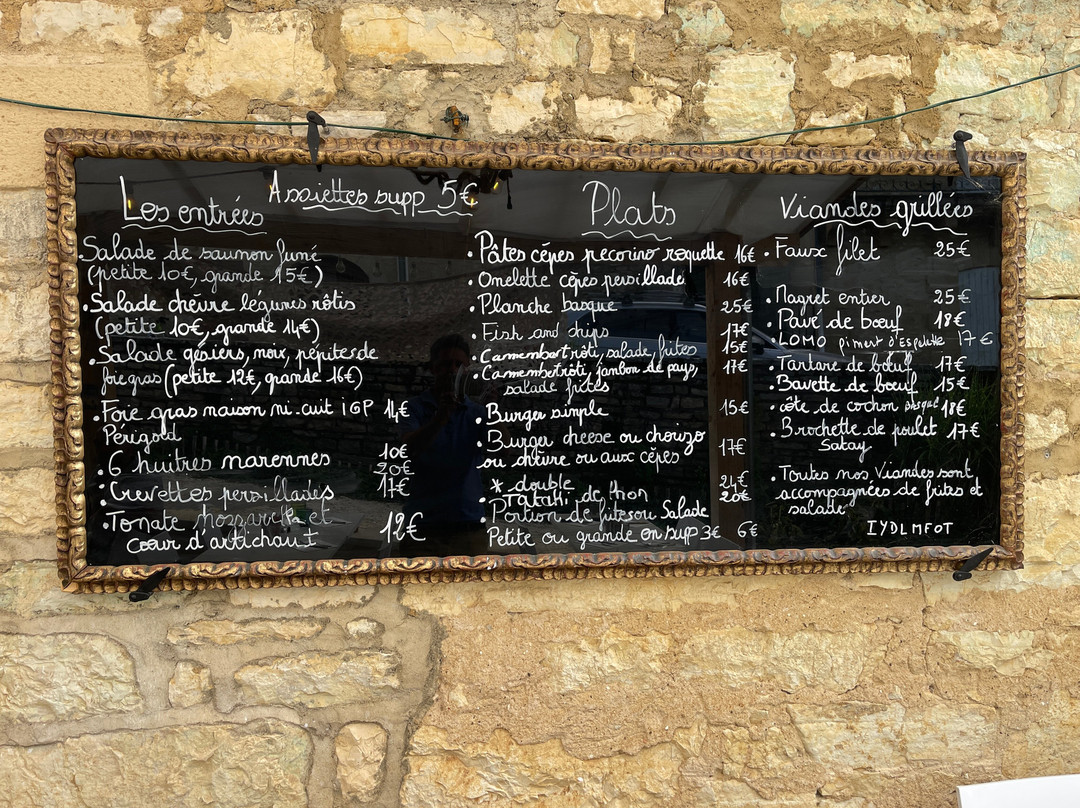 Les entrées
Assiettes supp 5€
. Salade de saumon fumé
(petite 10€, grande 15€)
. Salade chèvre légumes rôtis
(petite 10€, grande 14€)
. Salade gésiers, noix, pépites de
foie gras (petite 12€, grande 16€)
. Foie gras maison mi.cuit IGP 14€
Périgord
. 6 huitres marennes 10€
20€
. Crevettes persillades 17€
. Tomate Mozzarella et
cœur d'artichaut 12€
Plats
. Pâtes cèpes pecorino roquette 16€
. Omelette cèpes persillade 16€
. Planche basque 25€
. Fish and chips 17€
. Camembert rôti, salade, frites 15€
. Camembert rôti, jambon de pays, 17€
salade frites
. Burger simple 15€
. Burger cheese ou chorizo
ou chèvre ou aux cèpes 17€
* double 24€
. Tataki de thon 20€
. Portion de frites ou Salade
Petite ou grande en supp 3€ 6€
Viandes grillées
. Faux filet 25€
. Magret entier 25€
. Pavé de bœuf 18€
. LOMO piment d'Espelette 17€
. Tartare de bœuf 17€
. Bavette de bœuf 15€
. côte de cochon basque 18€
. Brochette de poulet 17€
Satay
. Toutes nos Viandes sont
accompagnées de frites et
salade
IYDLMFOT